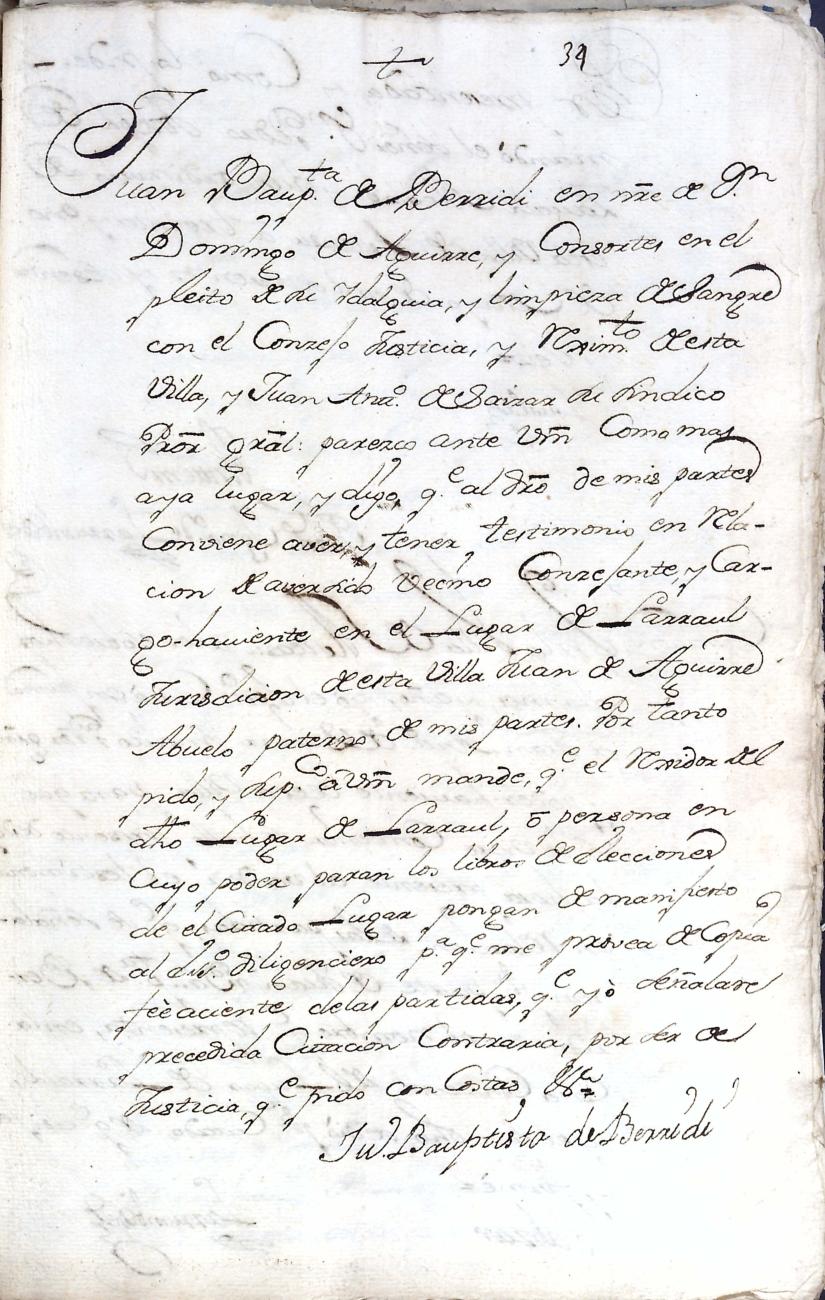 34
Juan Baup.ta de Berridi en nr̃e de D.n
Domingo de Aguirre, y Consortes en el
pleito de su Idalguia, y limpieza de Sangre
con el Conzejo Justicia, y Rexim.to de esta
Villa, y Juan Ant.o de Saizar su Sindico
Pror̃ gral̃: parezco ante Vm̃ Como mas
aya lugar, y digo, q.e al dr̃o de mis partes
Conviene aver, y tener testimonio en Rela-
cion de aver sido Vecino Conzejante, y Car-
go-haviente en el Lugar de Larraul
Jurisdicion de esta Villa Juan de Aguirre
Abuelo paterno de mis partes. Por tanto
pido, y sup.co a Vm̃ mande, q.e el Rexidor del
dho Lugar de Larraul, ò persona en
Cuyo poder paran los libros de elecciones
de el Citado Lugar pongan de manifiesto
al diligenciero p.a q.e me provea de Copia
feèaciente de las partidas, q.e yò señalare
precedida Citacion Contraria, por ser de
Justicia, q.e pido con Costas, &.a
Ju.o Bauptista de Berridi